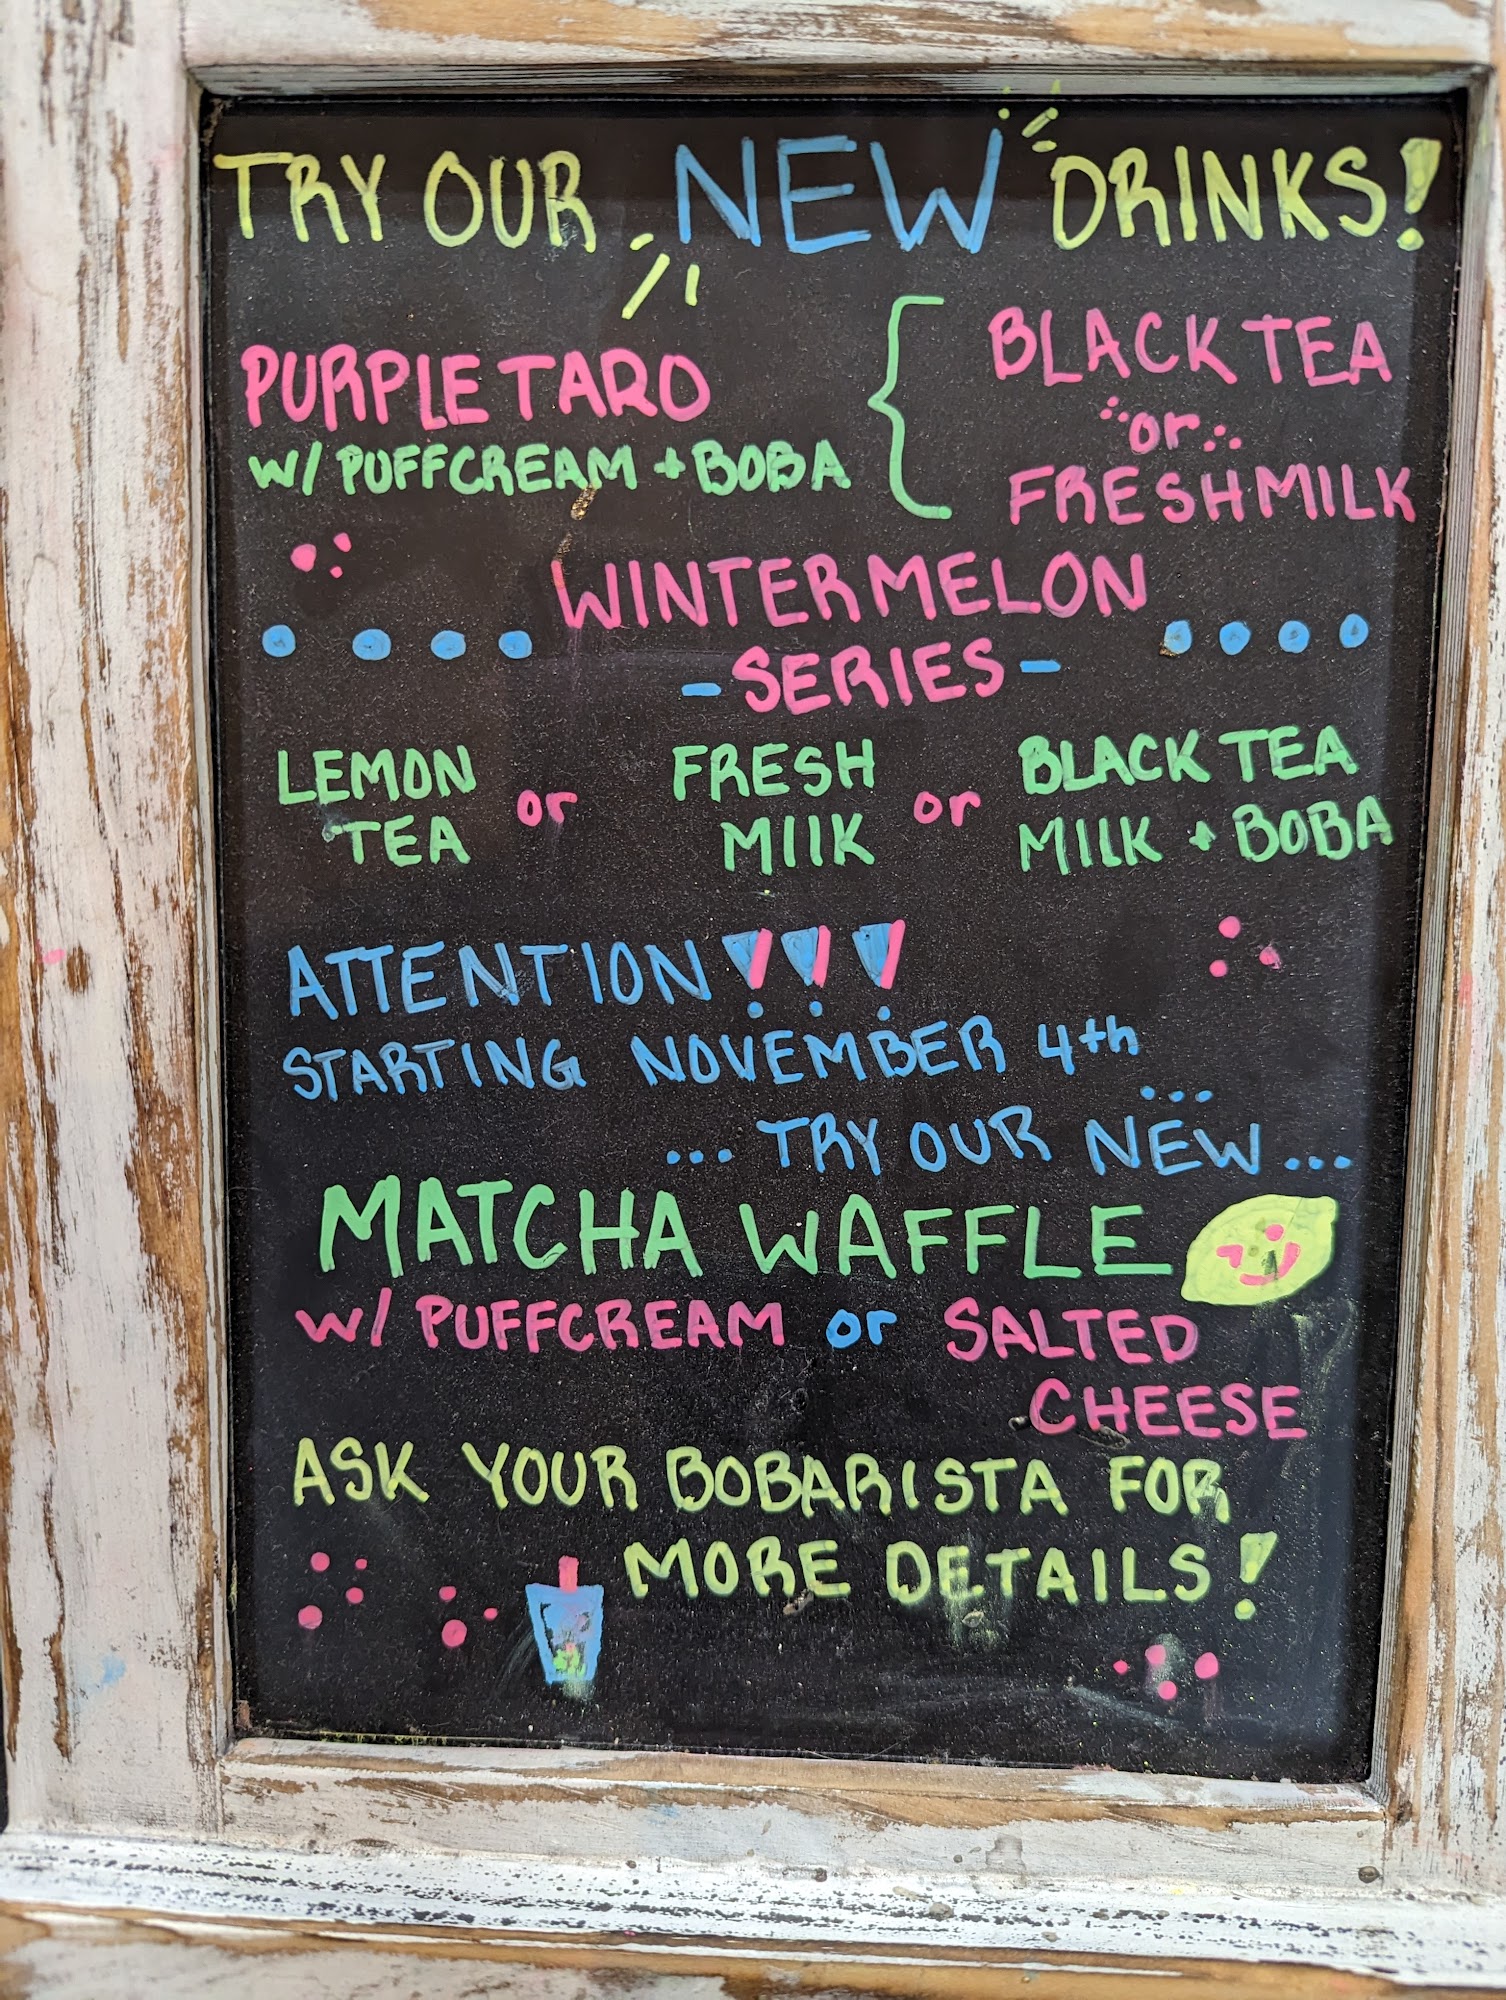 TRY OUR NEW DRINKS!
PURPLE TARO
W/ PUFFCREAM + BOBA
BLACK TEA
or
FRESH MILK
WINTERMELON
- SERIES -
LEMON TEA or FRESH MILK or BLACK TEA MILK + BOBA
ATTENTION!!!
STARTING NOVEMBER 4th...
... TRY OUR NEW ...
MATCHA WAFFLE
W/ PUFFCREAM or SALTED
CHEESE
ASK YOUR BOBARISTA FOR
MORE DETAILS!